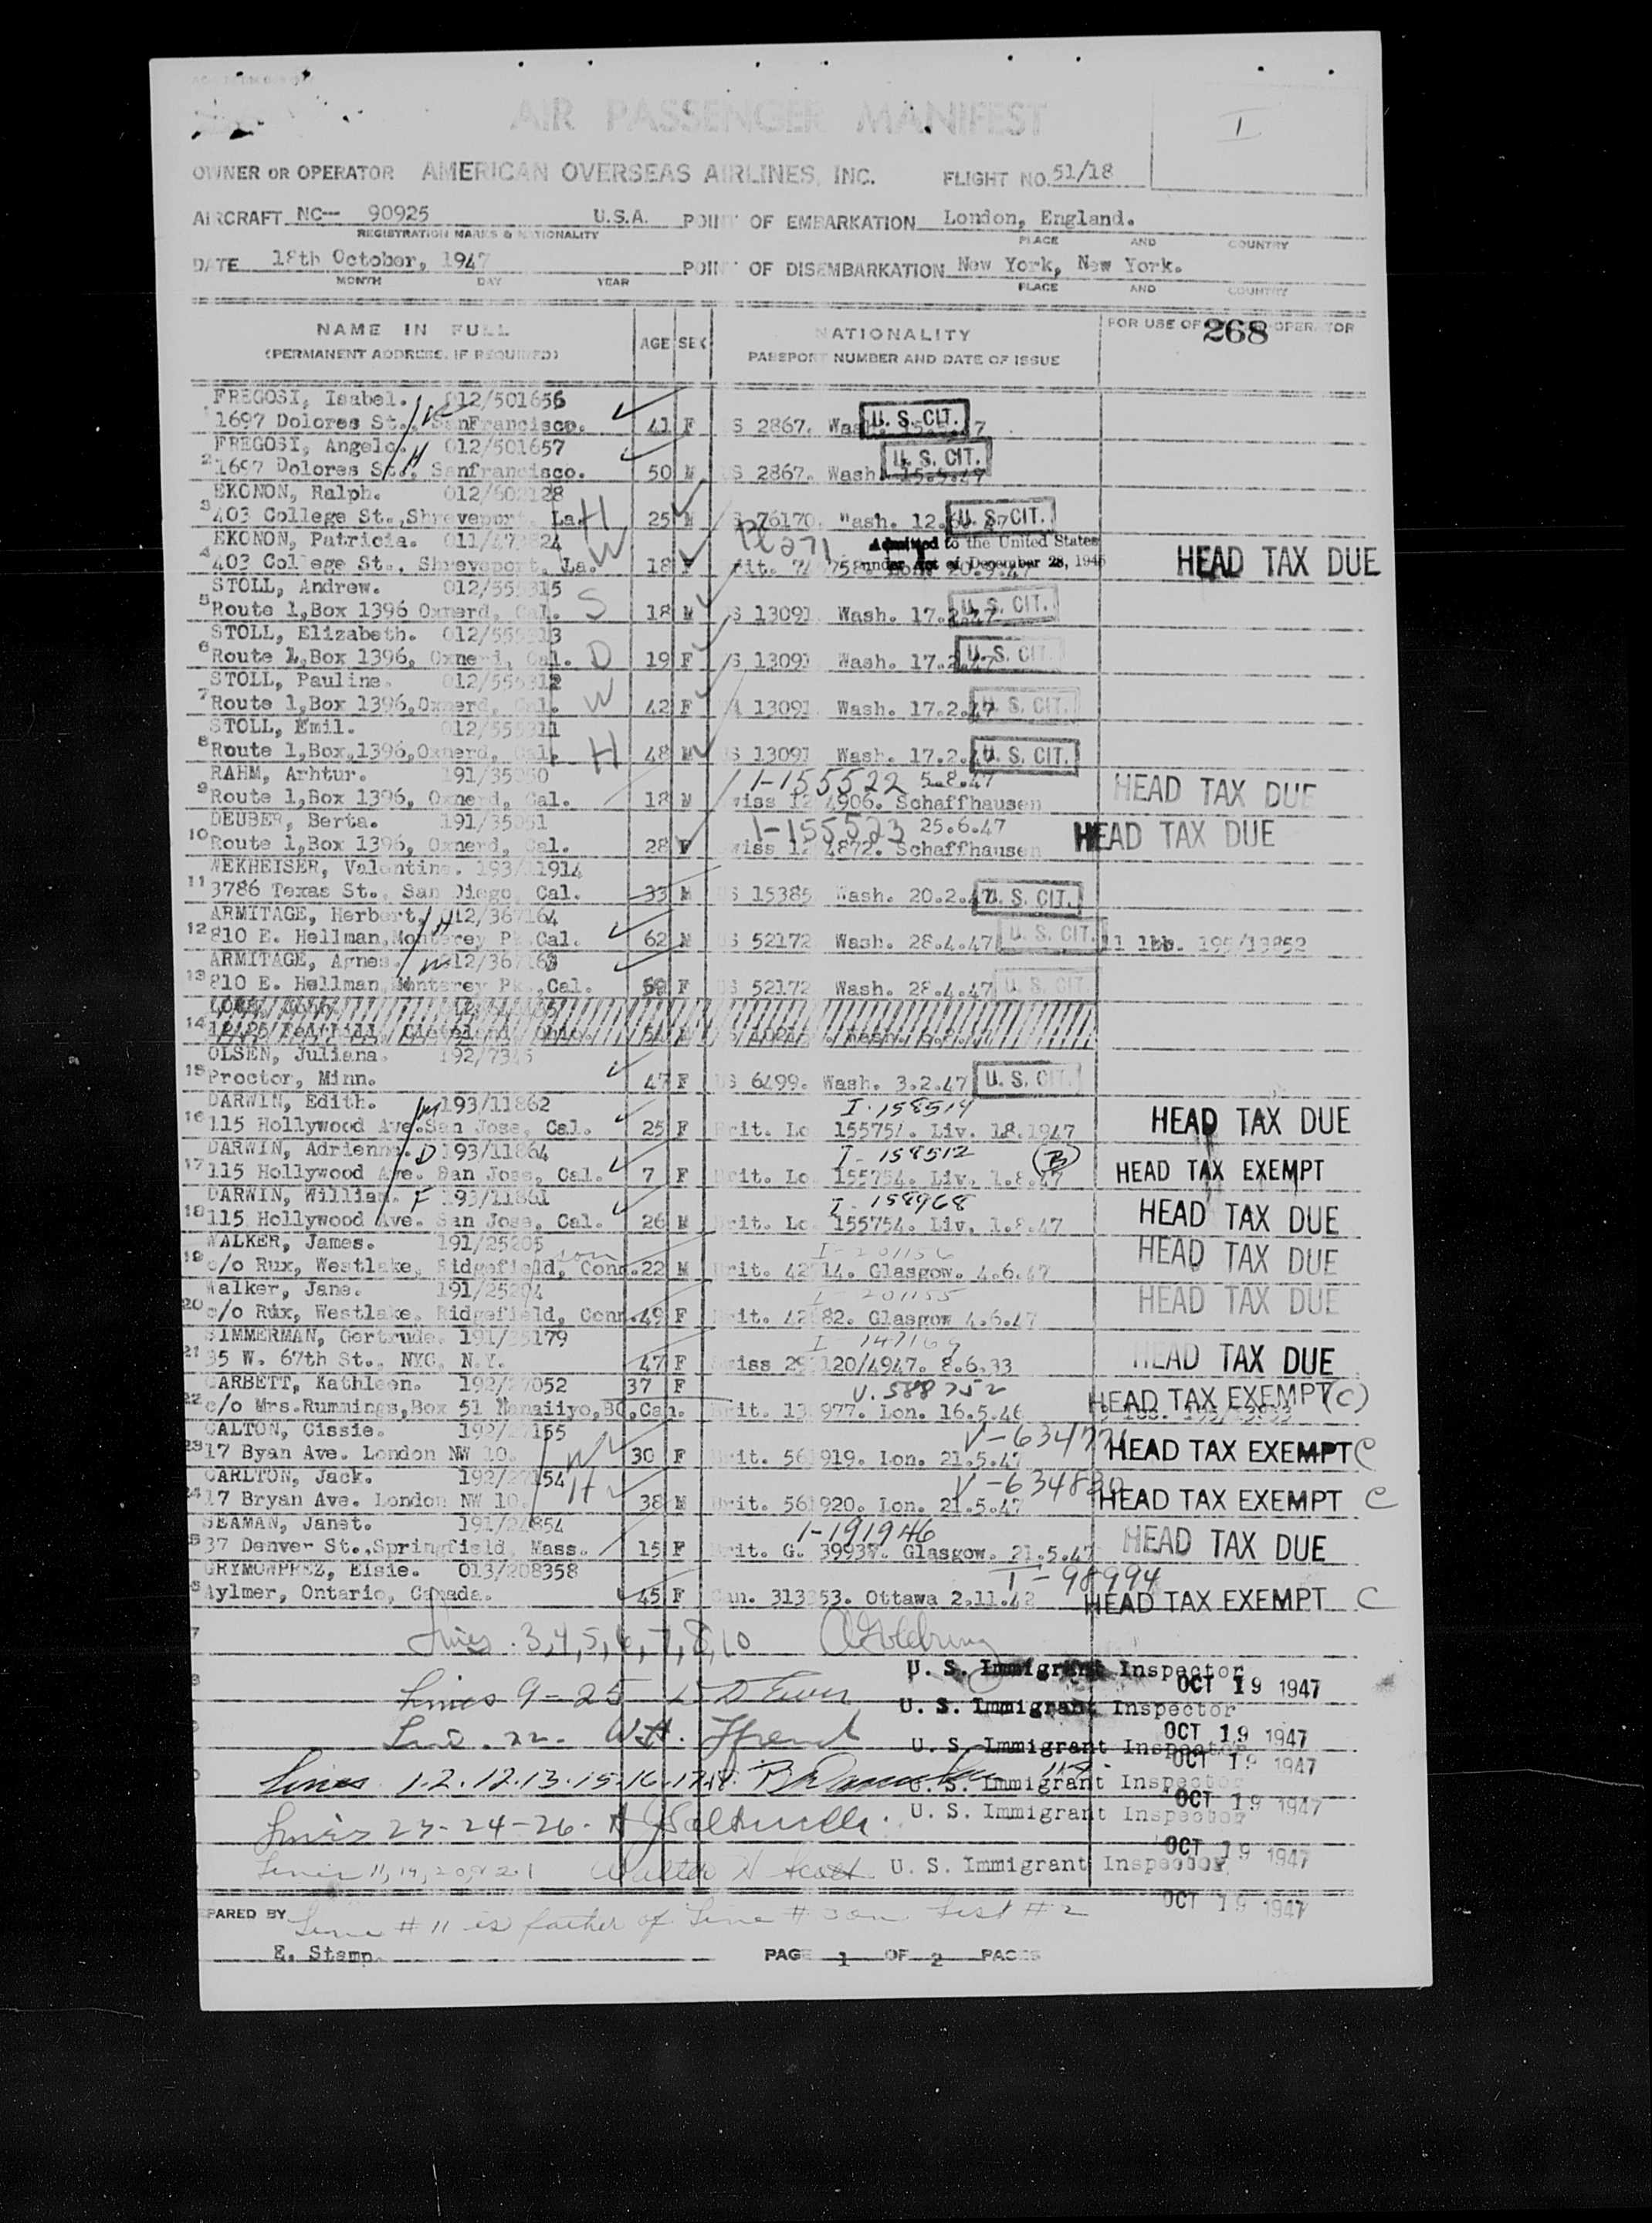 AIR PASSENGER MANIFEST
I
OWNER OR OPERATOR AMERICAN OVERSEAS AIRLINES, INC. FLIGHT NO. 51/18
AIRCRAFT NC-- 90925 U.S.A. POINT OF EMBARKATION London, England.
REGISTRATION MARKS & NATIONALITY PLACE AND COUNTRY
DATE 18th October, 1947 POINT OF DISEMBARKATION New York, New York.
MONTH DAY YEAR PLACE AND COUNTRY
NAME IN FULL AGE SEX NATIONALITY FOR USE OF OPERATOR 268
(PERMANENT ADDRESS, IF REQUIRED) PASSPORT NUMBER AND DATE OF ISSUE
FREGOSI, Isabel. 012/501656
1 1697 Dolores St., SanFrancisco. 41 F S 2867. Wash. U. S. CIT.
FREGOSI, Angelo. H 012/501657
2 1697 Dolores St., Sanfrancisco. 50 M US 2867. Wash. 15.5.47 U. S. CIT.
EKONON, Ralph.
3 403 College St., Shreveport, La. H 25 M S 76170. Wash. 12. U. S. CIT.
EKONON, Patricia. W Admitted to the United States
4 403 College St., Shreveport, La. 18 F under Act of December 28, 1945 HEAD TAX DUE
STOLL, Andrew. 012/555315
5 Route 1,Box 1396 Oxnerd, Cal. S 18 M S 13091 Wash. 17.2.47 U. S. CIT.
STOLL, Elizabeth. 012/555313
6 Route 1,Box 1396, Oxnerd, Cal. D 19 F S 13091 Wash. 17.2.47 U. S. CIT.
STOLL, Pauline. 012/555312
7 Route 1,Box 1396,Oxnerd, Cal. W 42 F 13091 Wash. 17.2.47 U. S. CIT.
STOLL, Emil. 012/555311
8 Route 1,Box,1396,Oxnerd, Cal. H 48 M S 13091 Wash. 17.2. U. S. CIT.
RAHM, Arhtur. 191/35050 I-155522 5.8.47
9 Route 1,Box 1396, Oxnerd, Cal. 18 M Swiss 4906. Schaffhausen HEAD TAX DUE
DEUBER, Berta. 191/35051 I-155523 25.6.47
10 Route 1,Box 1396, Oxnerd, Cal. 28 F Swiss 4872. Schaffhausen HEAD TAX DUE
WEKHEISER, Valentine. 193/11914
11 3786 Texas St., San Diego, Cal. 33 M US 15385 Wash. 20.2.47 U. S. CIT.
ARMITAGE, Herbert. H 012/367164
12 810 E. Hellman,Monterey Pk Cal. 62 M US 52172 Wash. 28.4.47 U. S. CIT. 11 lbb. 195/13852
ARMITAGE, Agnes. W 012/367163
13 810 E. Hellman,Monterey Pk.,Cal. F US 52172 Wash. 28.4.47 U. S. CIT.
14
OLSEN, Juliana.
15 Proctor, Minn. 47 F US 6499. Wash. 3.2.47 U. S. CIT.
DARWIN, Edith. M 193/11862 I-158514
16 115 Hollywood Ave.San Jose, Cal. 25 F Brit. Lo 155754. Liv. 1.8.1947 HEAD TAX DUE
DARWIN, Adrienne. D 193/11864 I-158512 (B)
17 115 Hollywood Ave. San Jose, Cal. 7 F Brit. Lo 155754. Liv. 1.8.47 HEAD TAX EXEMPT
DARWIN, William. F 193/11861 I-158968
18 115 Hollywood Ave. San Jose, Cal. 26 M Brit. Lo 155754. Liv. 1.8.47 HEAD TAX DUE
WALKER, James. 191/25205 son I-201156
19 c/o Rux, Westlake, Ridgefield, Conn. 22 M Brit. 42 14. Glasgow. 4.6.47 HEAD TAX DUE
Walker, Jane. 191/25204 I-201155
20 c/o Rux, Westlake, Ridgefield, Conn. 49 F Brit. 42 82. Glasgow 4.6.47 HEAD TAX DUE
SIMMERMAN, Gertrude. I 147169
21 35 W. 67th St., NYC, N.Y. 47 F Swiss 29 120/4947. 8.6.33 HEAD TAX DUE
GARBETT, Kathleen. 192/27052 37 F V. 588752
22 c/o Mrs.Rummings,Box 51 BC,Can. Brit. 13 977. Lon. 16.5.46 HEAD TAX EXEMPT (C)
CALTON, Cissie. 192/27155
23 17 Byan Ave. London NW 10. W 30 F Brit. 56 919. Lon. 21.5.47 HEAD TAX EXEMPT C
CARLTON, Jack. 192/27154 V-634830
24 17 Bryan Ave. London NW 10. H 38 M Brit. 561920. Lon. 21.5.47 HEAD TAX EXEMPT C
SEAMAN, Janet. I-191946
25 37 Denver St.,Springfield, Mass. 15 F Brit. G. Glasgow. 21.5.47 HEAD TAX DUE
GRYMONPREZ, Elsie. 013/208358 I-98994
Aylmer, Ontario, Canada. 45 F Can. Ottawa 2.11.42 HEAD TAX EXEMPT C
Lines. 3,4,5,6,7,8,10
U. S. Immigrant Inspector OCT 19 1947
Lines 9-25
U. S. Immigrant Inspector OCT 19 1947
Line. 22. W.H. Ffrench U. S. Immigrant Inspector OCT 19 1947
Lines 1.2.12.13.15.16.17.18. U. S. Immigrant Inspector OCT 19 1947
Lines 23-24-26. U. S. Immigrant Inspector OCT 19 1947
Lines 11, 19, 20, & 21 Walter H Scott U. S. Immigrant Inspector OCT 19 1947
PREPARED BY Line # 11 is father of Line # 3 on List # 2
E. Stamp. PAGE 1 OF 2 PAGES